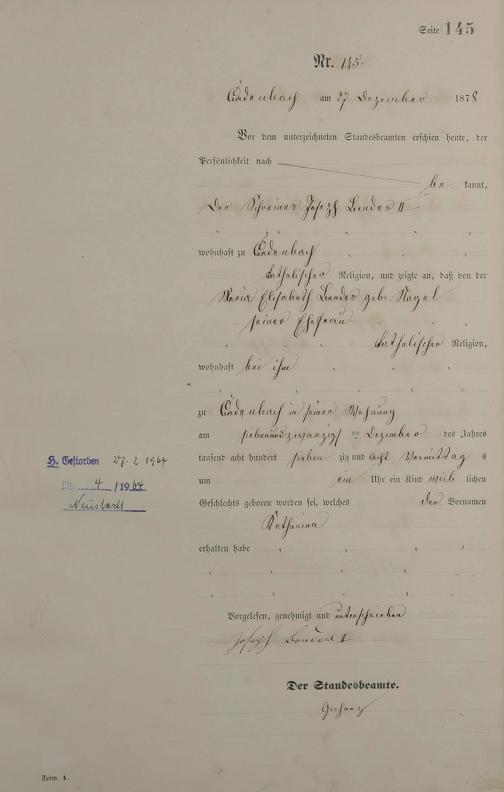 Seite 145
Nr. 145.
Cadenbach am 27 Dezember 1878
Vor dem unterzeichneten Standesbeamten erschien heute, der
Persönlichkeit nach
be kannt,
der Schreiner Joseph Bender II
wohnhaft zu Cadenbach
katholischer Religion, und zeigte an, daß von der
Maria Elisabeth Bender geb. Nagel
seiner Ehefrau
katholischer Religion,
wohnhaft bei ihm
zu Cadenbach in seiner Wohnung
am siebenundzwanzigsten Dezember des Jahres
tausend acht hundert sieben zig und acht Vormittag s
um ein Uhr ein Kind weib lichen
Geschlechts geboren worden sei, welches den Vornamen
Katharina
erhalten habe
H. Gestorben 27. 2. 1964
Nr. 4 / 1964
Neustadt
Vorgelesen, genehmigt und unterschrieben
Joseph Bender II
Der Standesbeamte.
Form. A.